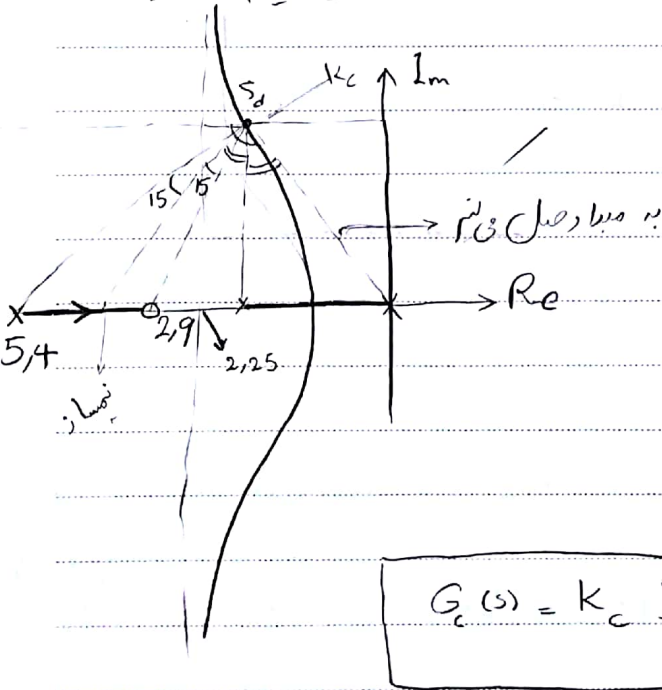 S_d
K_c
Im
15
15
به مبدا وصل می کنیم
Re
5,4
2,9
2,25
نیمساز
G_c(s) = K_c